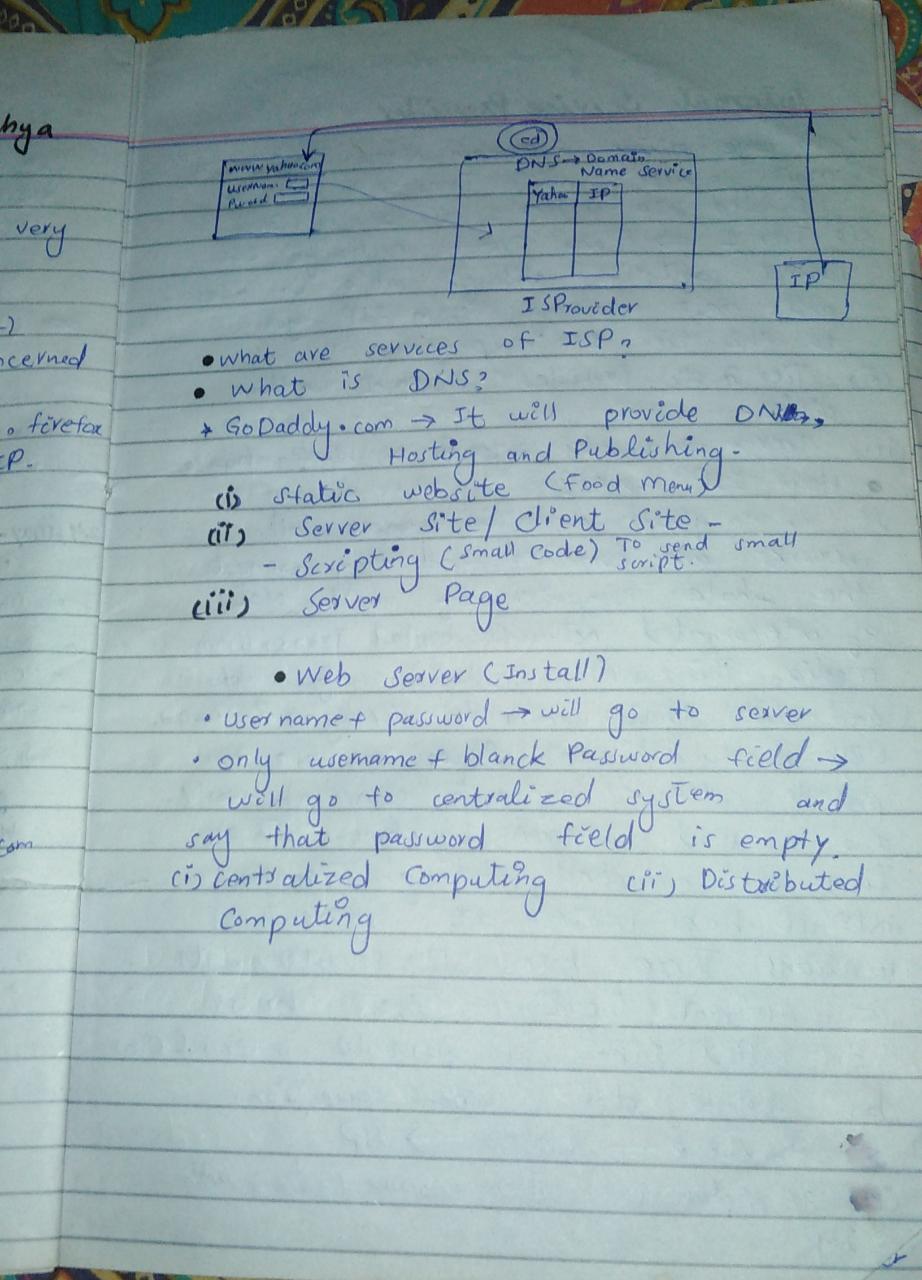 hya
very
ncerned
o firefox
P.
com
ed
www.yahoo.com
Username
DNS → Domain
Name Service
Yahoo IP
IP
ISProvider
• what are services of ISP?
• What is DNS?
GoDaddy.com → It will provide
Hosting and Publishing.
(i) static website (Food menu)
(ii) Server Site/ Client Site -
- Scripting (small code) To send small
script.
(iii) Server Page
• Web Server (Install)
• username + password → will go to server
• only username + blanck Password field →
will go to centralized system and
say that password field is empty.
(i) centralized Computing (ii) Distributed
Computing